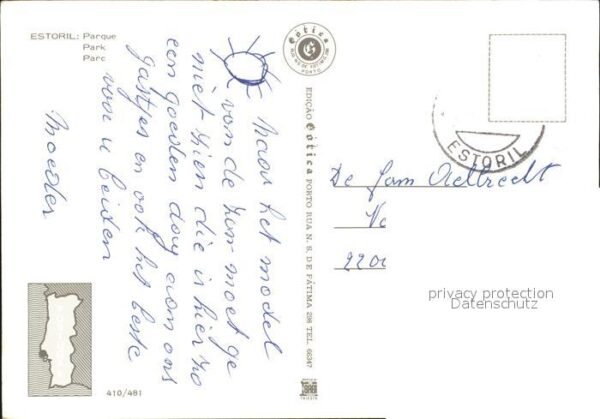 ESTORIL: Parque
Park
Parc
Naar het model
van de zon moet ge
niet zien die is hier zo
een goeden dag van ons
gastjes en ook het beste
voor u beiden
Moeder
Gótica
PORTO
EDIÇÃO Gótica PORTO RUA N. S. DE FÁTIMA, 298 TEL. 66347
ESTORIL
De Fam Aelbrecht
220
privacy protection
Datenschutz
410/481